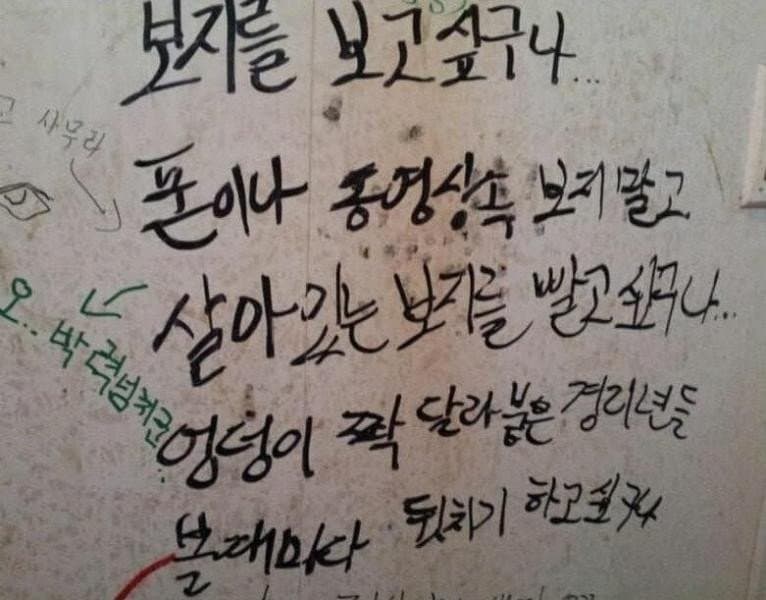 보지를 보고싶구나...
고 사무라
폰이나 동영상속 보지말고
살아있는 보지를 빨고싶구나...
오.. 박력넘치군
엉덩이 짝 달라붙은 경리년들
볼때마다 뒷치기 하고싶구나